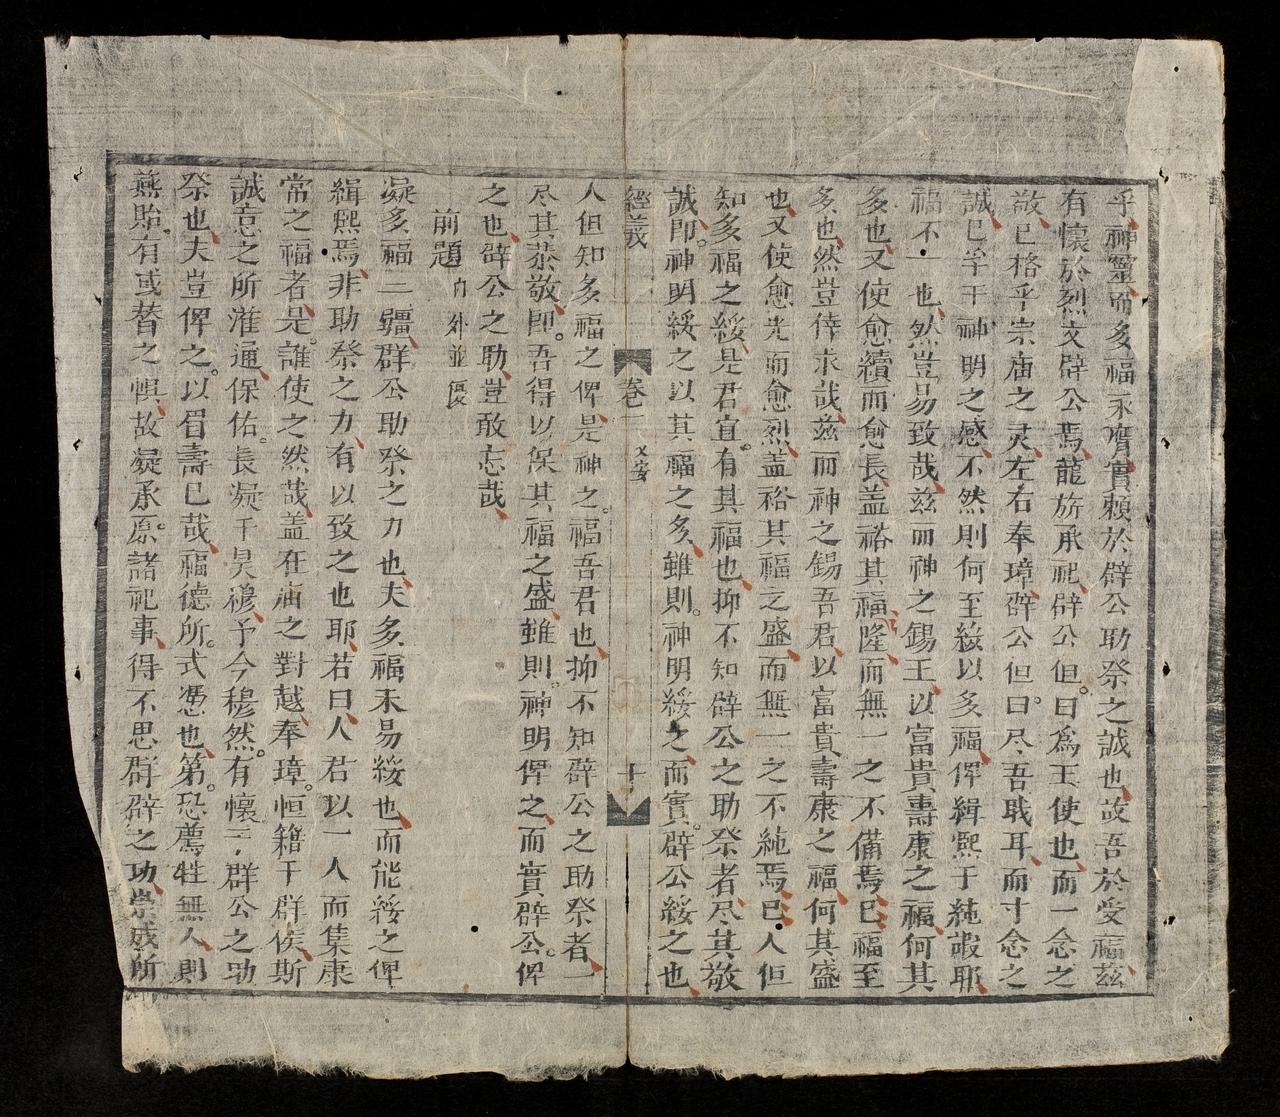 乎神靈而多福永膺實賴於辟公助祭之誠也故吾於受福茲
有懷於烈文辟公焉龍旂承祀辟公但曰爲王使也而一念之
敬已格乎宗庙之灵左右奉璋辟公但曰尽吾戝耳而寸念之
誠已孚于神明之感不然則何至綏以多福俾緝熙于純嘏耶
福不一也然豈易致哉兹而神之錫王以富貴壽康之福何其
多也又使愈續而愈長盖畧其福隆而無一之不備焉已福至
多也然豈倖求哉兹而神之錫吾君以富貴壽康之福何其盛
也又使愈光而愈烈盖裕其福之盛而無一之不純焉已人但
知多福之綏是君宜有其福也抑不知辟公之助祭者尽其敬
誠即神明綏之以其福之多雖則神明綏之而實辟公綏之也
經義 卷二 文安 十
人但知多福之俾是神之福吾君也抑不知辟公之助祭者一
尽其恭敬即吾得以保其福之盛雖則神明俾之而實辟公俾
之也辟公之助豈敢忘哉
前題 內外並優
凝多福二疆群公助祭之力也夫多福未易綏也而能綏之俾
緝熙焉非助祭之力有以致之也耶若曰人君以一人而集康
常之福者是誰使之然哉盖在庙之對越奉璋恒籍于群侯斯
誠意之所潅通保佑長凝于昊穆予今穆然有懷三群公之助
祭也夫豈俾之以眉壽已哉福德所式憑也第恐薦牲無人則
燕貽有或替之惧故凝承原諸祀事得不思群辟之功崇成所